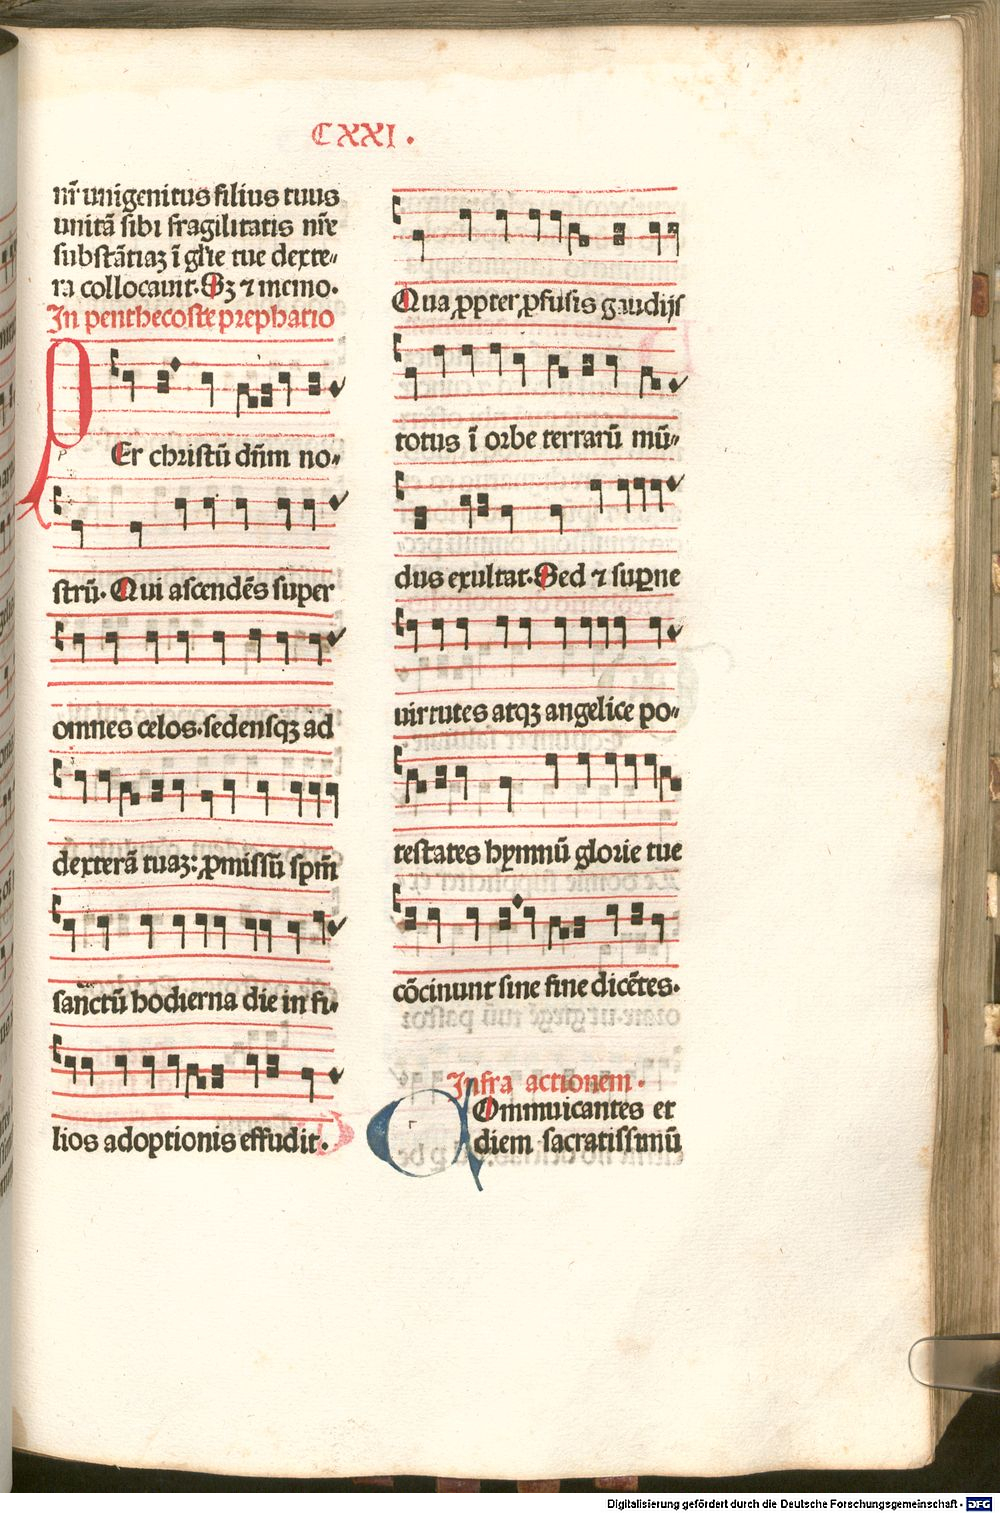 CXXI.
nr̄ unigenitus filius tuus
unitā sibi fragilitatis nr̄e
substātiaꝫ ī gl̄ie tue dexte⸗
ra collocauit. Sꝫ ⁊ memo.
In penthecoste prephatio
PEr christū dn̄m no⸗
strū. Qui ascendēs super
omnes celos. sedensqꝫ ad
dexterā tuaꝫ: ꝓmissū spm̄
sanctū hodierna die in fi⸗
lios adoptionis effudit.
Qua ꝓpter ꝓfusis gaudijs
totus ī orbe terrarū mū⸗
dus exultat. Sed ⁊ suꝑne
uirtutes atqꝫ angelice po⸗
testates hymnū glorie tue
cōcinunt sine fine dicētes.
Infra actionem.
COmmuicantes et
diem sacratissimū
Digitalisierung gefördert durch die Deutsche Forschungsgemeinschaft - DFG